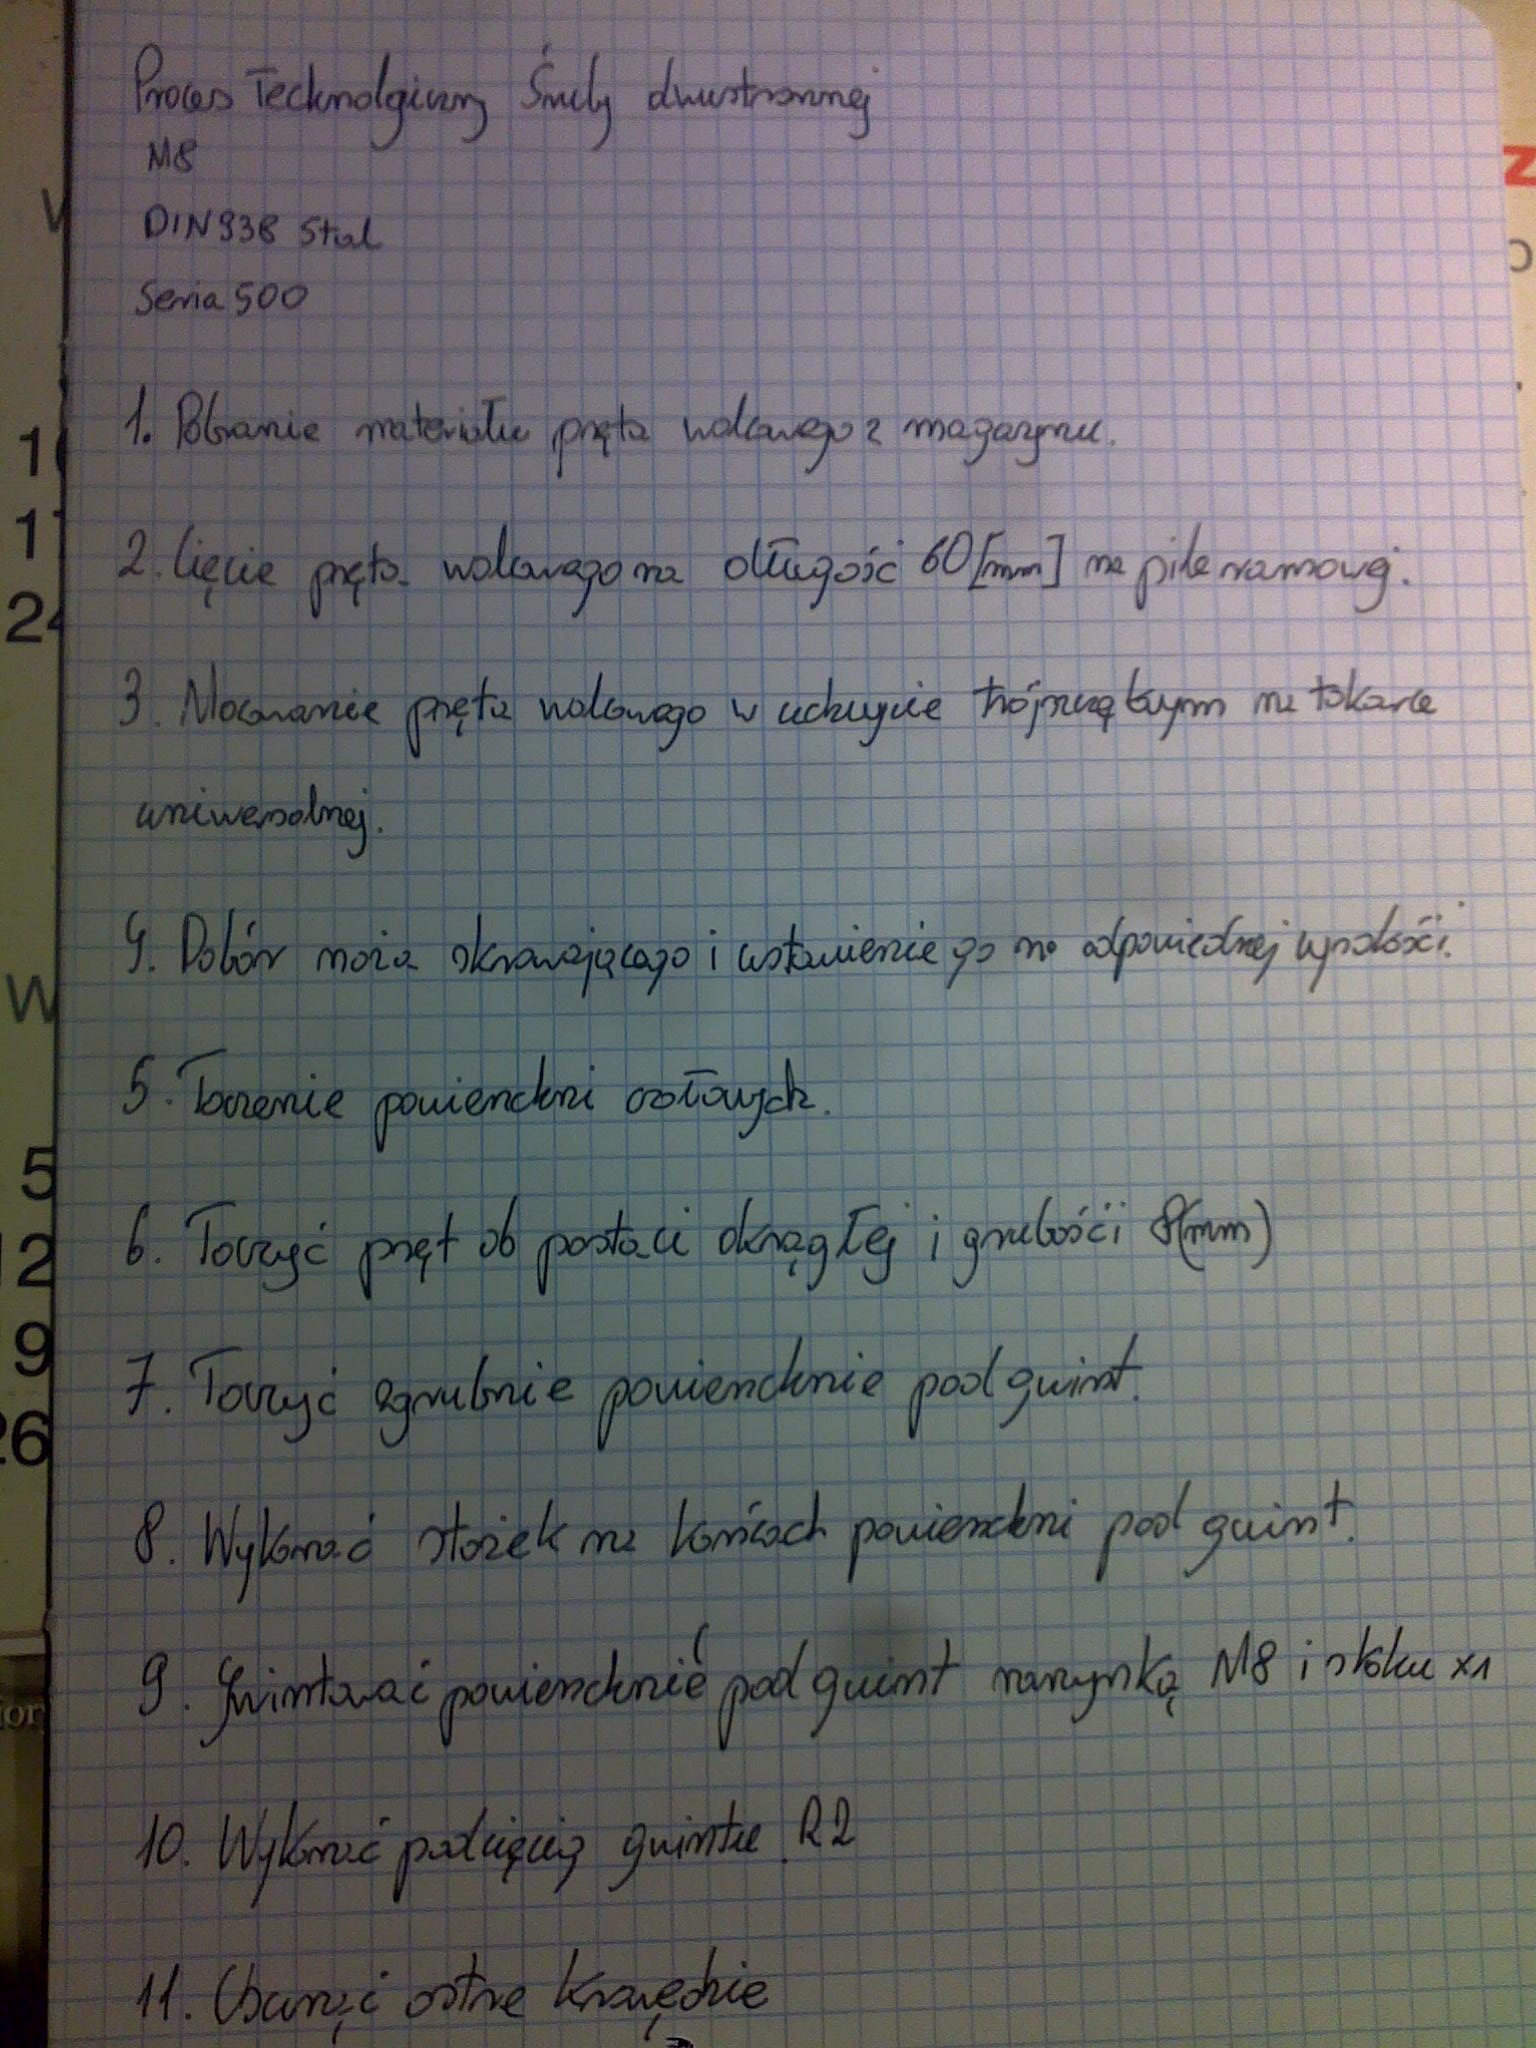 Proces Technolgiczny Śruby dwustronnej
M8
DIN938 Stal
Seria 500
1. Pobranie materiału pręta walcowego z magazynu.
2. Cięcie pręta walcowego na długość 60[mm] na pile ramowej.
3. Mocowanie pręta walcowego w uchwycie trójszczękowym na tokarce
uniwersalnej.
4. Dobór noża skrawającego i ustawienie go na odpowiedniej wysokości.
5. Toczenie powierzchni czołowych.
6. Toczyć pręt ob postaci okrągłej i grubości 8(mm)
7. Toczyć zgrubnie powierzchnie pod gwint.
8. Wykonać stożek na końcach powierzchni pod gwint.
9. Gwintować powierzchnie pod gwint narzynką M8 i skoku x1
10. Wykonać podcięcię gwintu R2
11. Usunąć ostre krawędzie
W
1
1
24
W
5
12
9
26
ion
Z